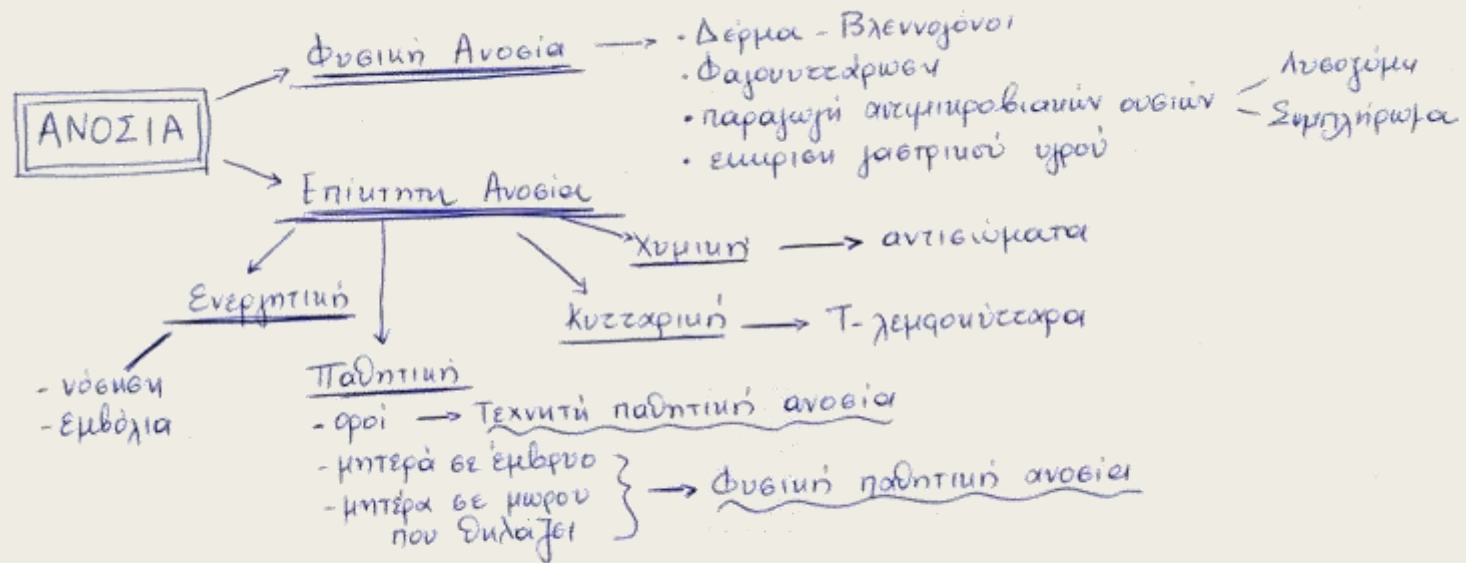 Φυσική Ανοσία → · Δέρμα - Βλεννογόνοι
· Φαγοκυττάρωση
Λυσοζύμη
ΑΝΟΣΙΑ
· παραγωγή αντιμικροβιακών ουσιών
Συμπλήρωμα
· εκκριση γαστρικού υγρού
Επίκτητη Ανοσία
Χυμική → αντισώματα
Ενεργητική
Κυτταρική → Τ-λεμφοκύτταρα
Παθητική
- νόσηση
- εμβόλια
- οροί → Τεχνητή παθητική ανοσία
- μητερά σε έμβρυο
- μητέρα σε μωρου
που θηλάζει
→ Φυσική παθητική ανοσία